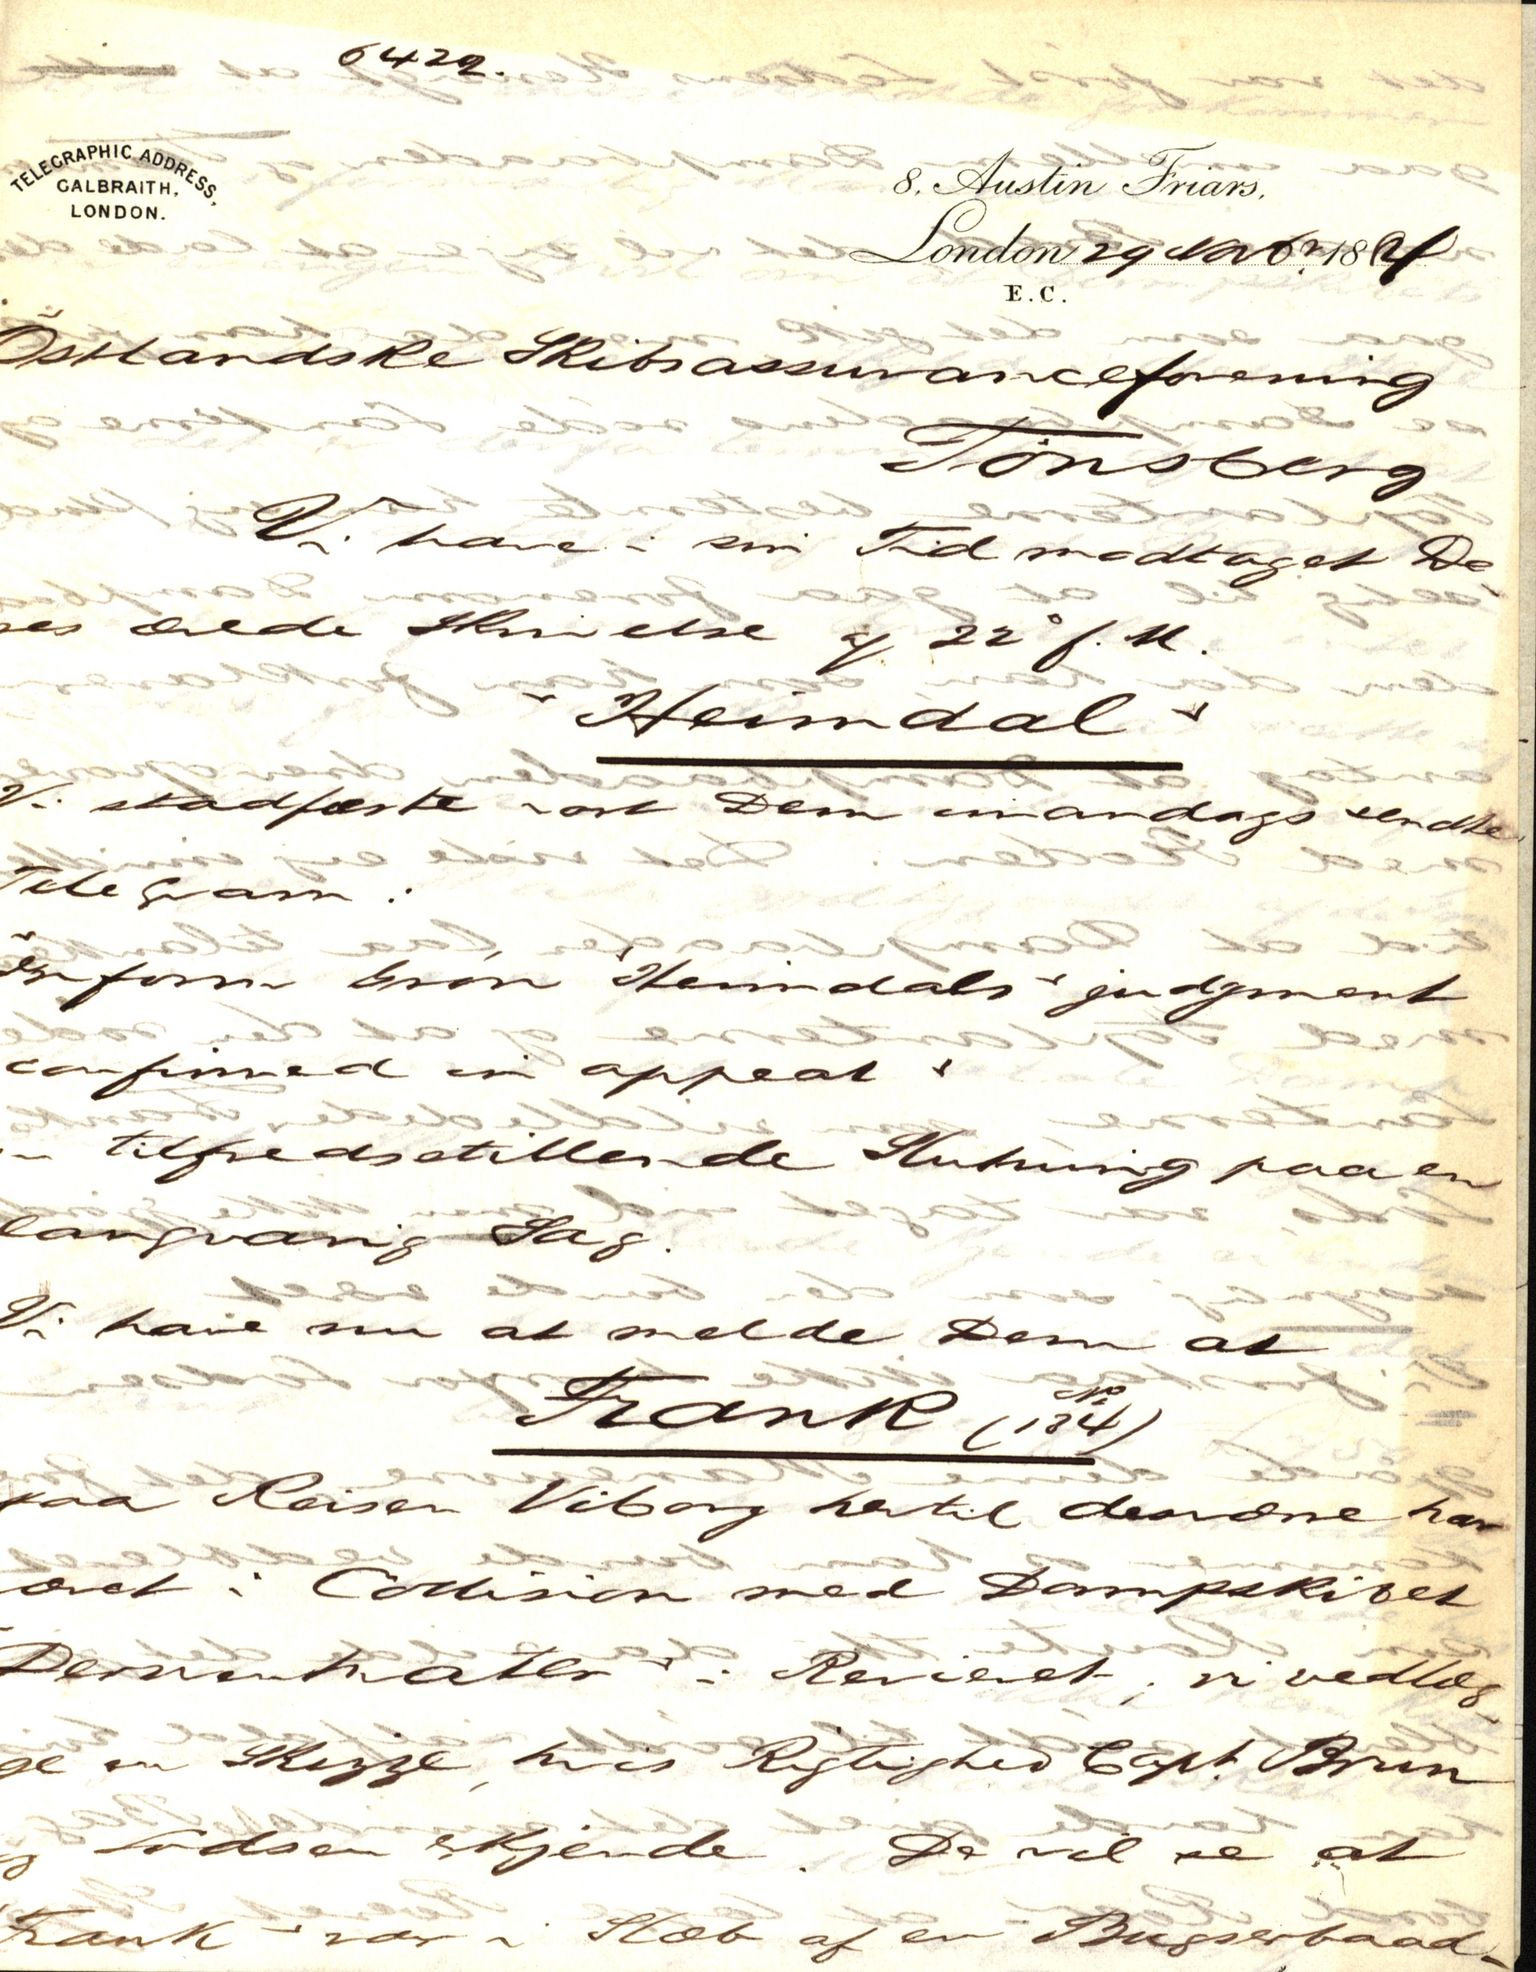 6422.
TELEGRAPHIC ADDRESS,
GALBRAITH,
LONDON.
8, Austin Friars,
London 29 Novbr 18
E.C.
Östlandske Skibsassuranceforening
Tönsberg
Vi have i sin Tid modtaget De-
res ærede Skrivelse af 22° f. M.
"Heimdal"
Vi stadfæste vort Dem imandags sendte
Telegram:
"Inform Grøn "Heimdals" judgment
confirmed in appeal"
en tilfredsstillende Slutning paa en
langvarig Sag.
Vi have nu at melde Dem at
Frank (No 134)
paa Reisen Viborg hertil desværre har
været i Collision med Dampskibet
"Demonstrater" i Revieret, vi vedlæg-
ge en Skizze, hvis Rigtighed Capt. Brun
og Lodsen erkjende. De vil se at
"Frank" var i Slæb af en Bugserbaad-